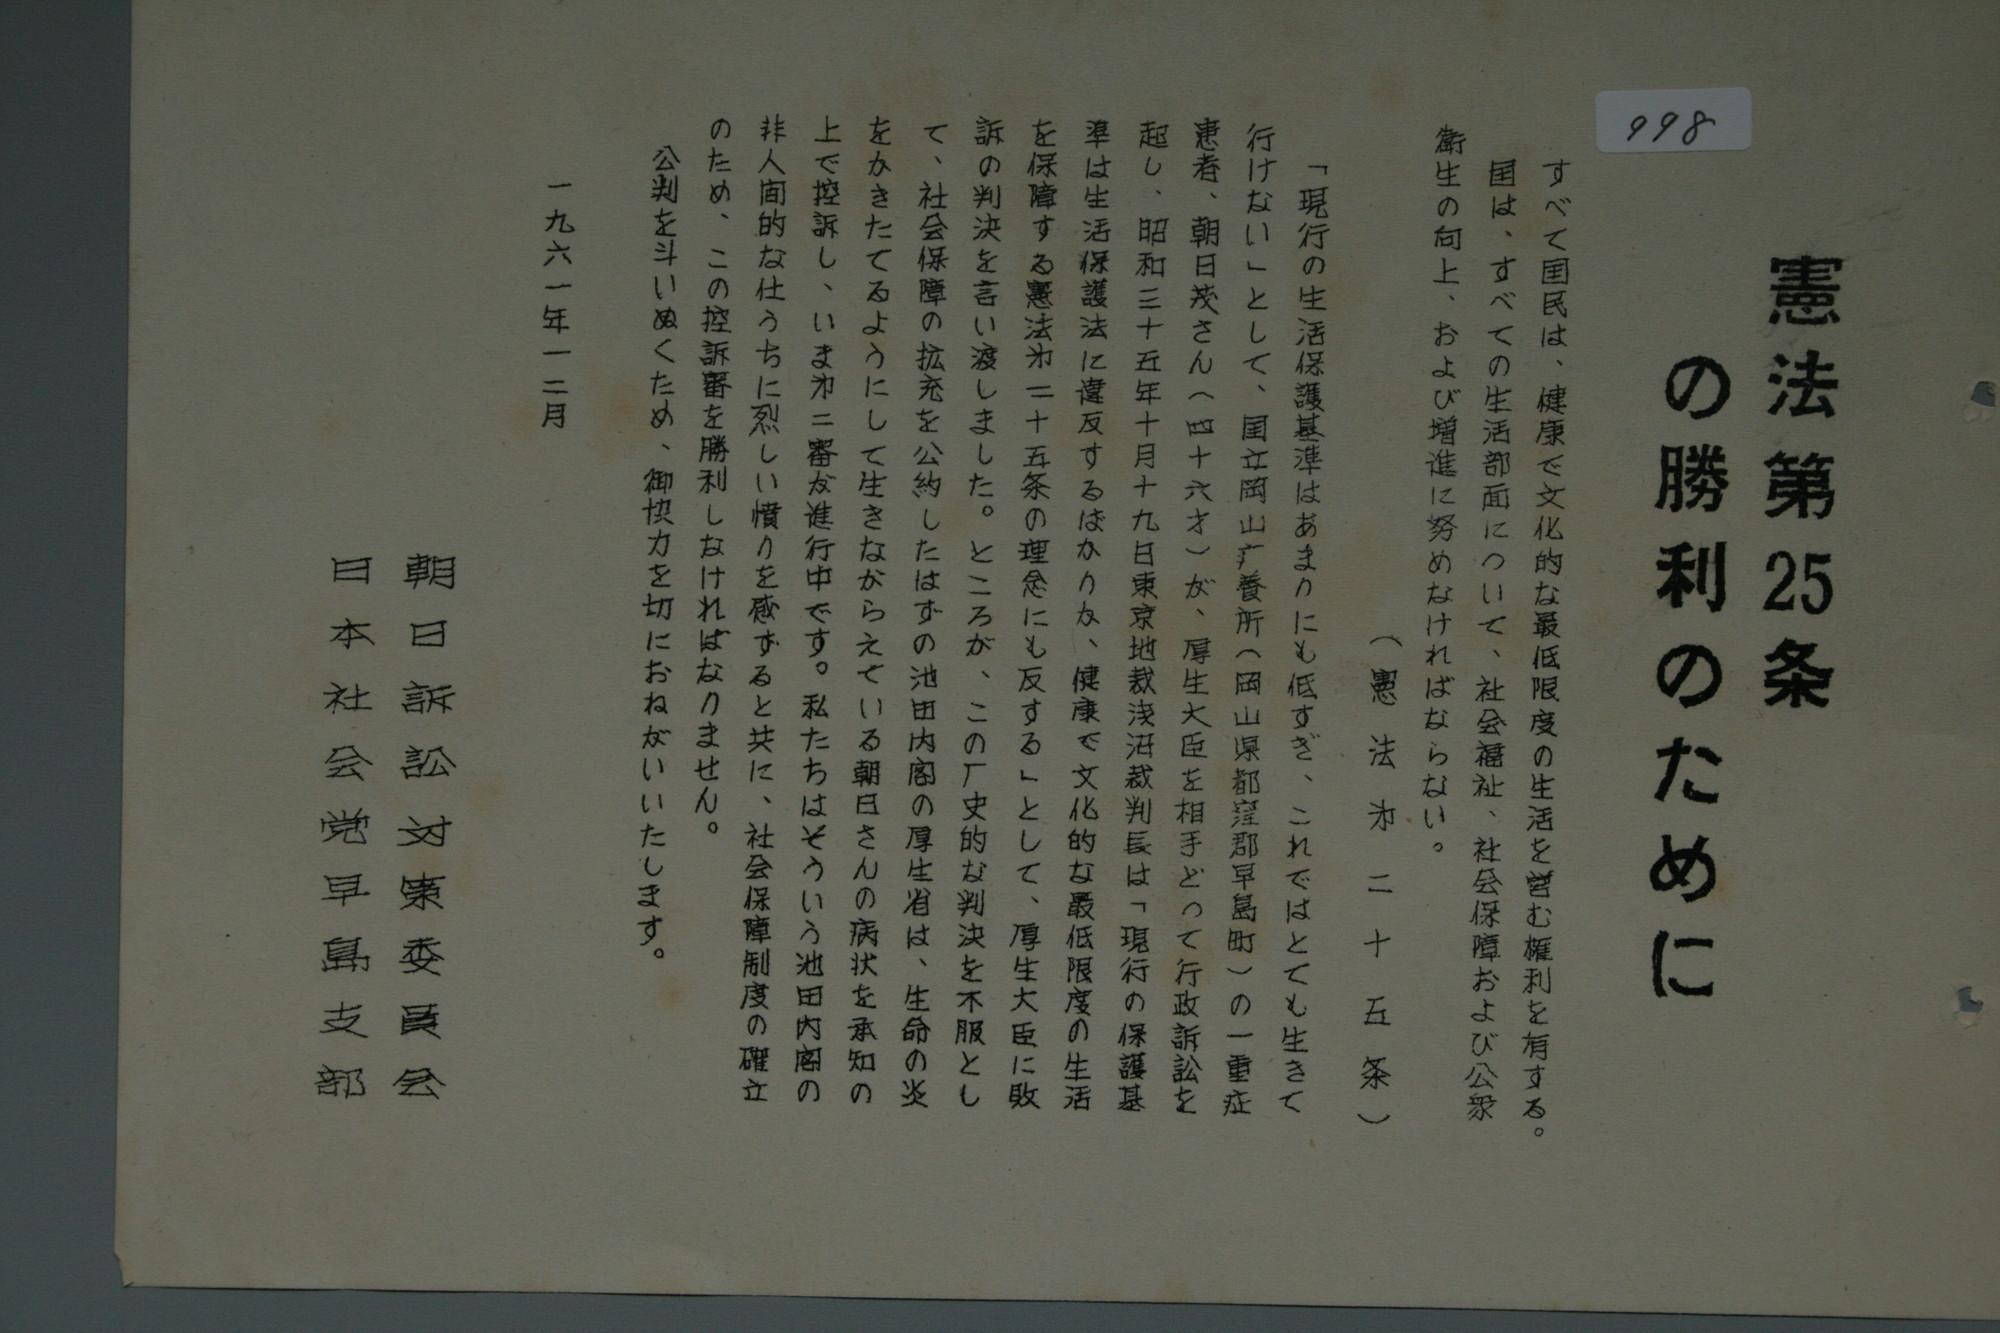 998
憲法第25条
の勝利のために
すべて国民は、健康で文化的な最低限度の生活を営む権利を有する。
国は、すべての生活部面について、社会福祉、社会保障および公衆
衛生の向上、および増進に努めなければならない。
（憲法㐧二十五条）
「現行の生活保護基準はあまりにも低すぎ、これではとても生きて
行けない」として、国立岡山疗養所（岡山県都窪郡早島町）の一重症
患者、朝日茂さん（四十六才）が、厚生大臣を相手どって行政訴訟を
起し、昭和三十五年十月十九日東京地裁浅沼裁判長は「現行の保護基
準は生活保護法に違反するばかりか、健康で文化的な最低限度の生活
を保障する憲法㐧二十五条の理念にも反する」として、厚生大臣に敗
訴の判決を言い渡しました。ところが、この厂史的な判決を不服とし
て、社会保障の拡充を公約したはずの池田内閣の厚生省は、生命の炎
をかきたてるようにして生きながらえている朝日さんの病状を承知の
上で控訴し、いま㐧二審が進行中です。私たちはそういう池田内閣の
非人間的な仕うちに烈しい憤りを感ずると共に、社会保障制度の確立
のため、この控訴審を勝利しなければなりません。
公判を斗いぬくため、御快力を切におねがいいたします。
一九六一年一二月
朝日訴訟対策委員会
日本社会党早島支部